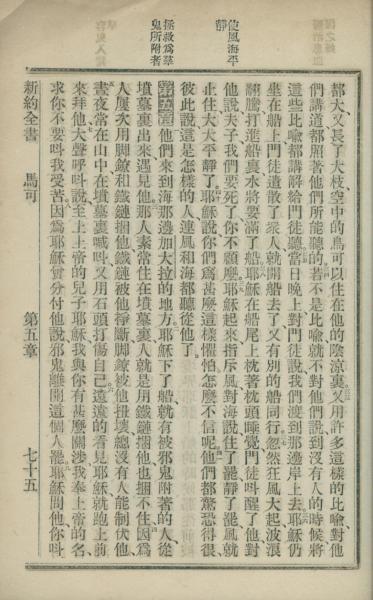 使風海平靜
拯救爲羣鬼所附者
都大又長了大枝空中的鳥可以住在他的陰涼裏又用許多這樣的比喻對他
們講道都照著他們所能聽的若不是比喻就不對他們說到沒有人的時候將
這些比喻都講解給門徒聽當日晚上對門徒說我們渡到那邊岸上去耶穌仍
坐在船上門徒遣散了衆人就開船去了又有別的船同行忽然狂風大起波浪
翻騰打進船裏水將要滿了船耶穌在船尾上枕著枕頭睡覺門徒呌醒了他對
他說夫子我們要死了你不顧麼耶穌起來指斥風對海說住了罷靜了罷風就
止住大大平靜了耶穌說你們爲甚麼這樣懼怕怎麼不信呢他們都驚恐得很
彼此說這是怎樣的人連風和海都聽從他了
第五章他們來到海那邊加大拉的地方耶穌下了船就有被邪鬼附著的人從
墳墓裏出來遇見他那人素常住在墳墓裏人就是用鐵鏈捆他也捆不住因爲
人屢次用脚鐐和鐵鏈捆他鐵鏈被他掙斷脚鐐被他扭壞總沒有人能制伏他
晝夜常在山中在墳墓裏喊呌又用石頭打傷自己遠遠的看見耶穌就跑上前
來拜他大聲呼呌說至上上帝的兒子耶穌我與你有甚麼關涉我奉上帝的名
求你不要呌我受苦因爲耶穌曾分付他說邪鬼離開這個人罷耶穌問他你呌
新約全書 馬可 第五章 七十五